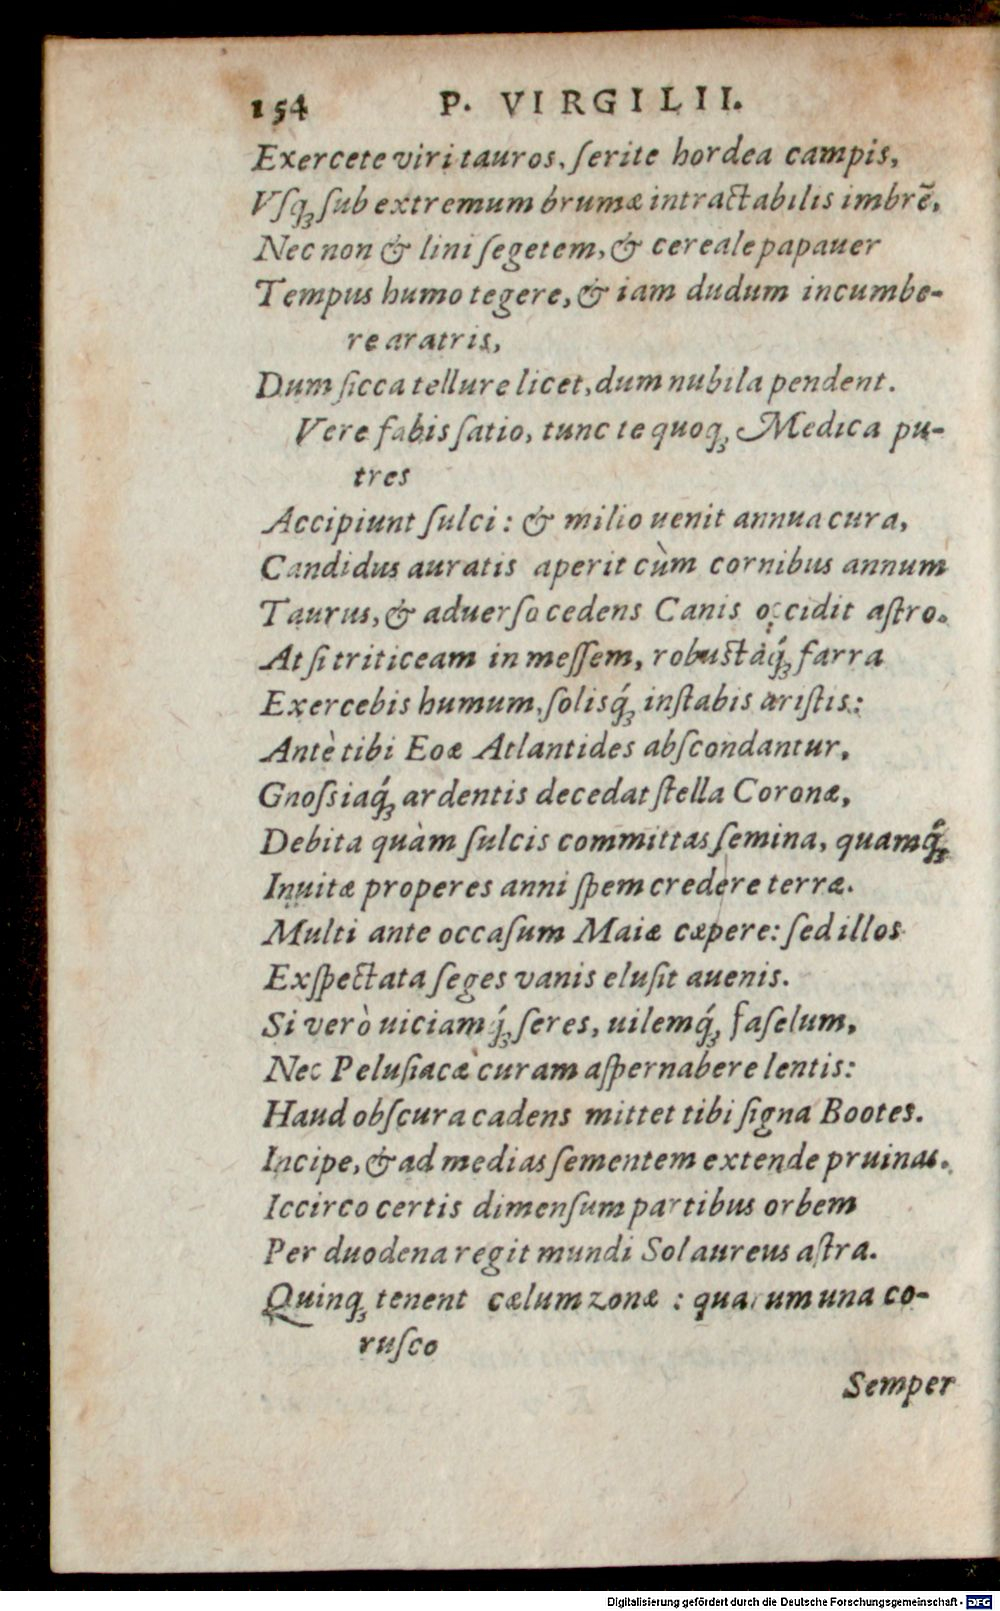 154 P. VIRGILII.
Exercete viri tauros, ſerite hordea campis,
Vſqꝫ ſub extremum brumæ intractabilis imbrē,
Nec non & lini ſegetem, & cereale papauer
Tempus humo tegere, & iam dudum incumbe-
re aratris,
Dum ſicca tellure licet, dum nubila pendent.
Vere fabis ſatio, tunc te quoqꝫ Medica pu-
tres
Accipiunt ſulci: & milio uenit annua cura,
Candidus auratis aperit cùm cornibus annum
Taurus, & aduerſo cedens Canis occidit aſtro.
At ſi triticeam in meſſem, robustaq́ꝫ farra
Exercebis humum, ſolisq́ꝫ inſtabis ariſtis:
Antè tibi Eoæ Atlantides abſcondantur,
Gnoſsiaq́ꝫ ardentis decedat ſtella Coronæ,
Debita quàm ſulcis committas ſemina, quamq́ꝫ
Inuitæ properes anni ſpem credere terræ.
Multi ante occaſum Maiæ cæpere: ſed illos
Exſpectata ſeges vanis eluſit auenis.
Si verò uiciamq́ꝫ ſeres, uilemq́ꝫ faſelum,
Nec Peluſiacæ curam aſpernabere lentis:
Haud obſcura cadens mittet tibi ſigna Bootes.
Incipe, & ad medias ſementem extende pruinas.
Iccirco certis dimenſum partibus orbem
Per duodena regit mundi Sol aureus aſtra.
Quinqꝫ tenent cælum zonæ : quarum una co-
ruſco
Semper
Digitalisierung gefördert durch die Deutsche Forschungsgemeinschaft - DFG